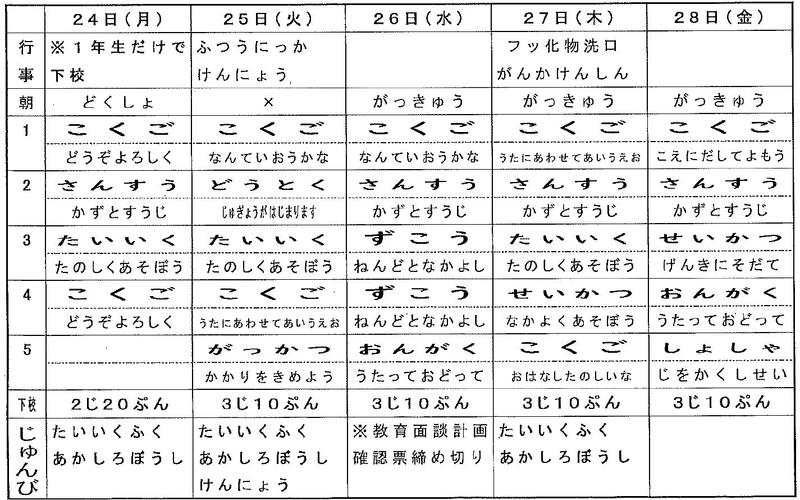 ２４日(月) ２５日(火) ２６日(水) ２７日(木) ２８日(金)
行事 ※１年生だけで ふつうにっか フッ化物洗口
下校 けんにょう がんかけんしん
朝 どくしょ × がっきゅう がっきゅう がっきゅう
1 こくご こくご こくご こくご こくご
どうぞよろしく なんていおうかな なんていおうかな うたにあわせてあいうえお こえにだしてよもう
2 さんすう どうとく さんすう さんすう さんすう
かずとすうじ じゅぎょうがはじまります かずとすうじ かずとすうじ かずとすうじ
3 たいいく たいいく ずこう たいいく せいかつ
たのしくあそぼう たのしくあそぼう ねんどとなかよし たのしくあそぼう げんきにそだて
4 こくご こくご ずこう せいかつ おんがく
どうぞよろしく うたにあわせてあいうえお ねんどとなかよし なかよくあそぼう うたっておどって
5 がっかつ おんがく こくご しょしゃ
かかりをきめよう うたっておどって おはなしたのしいな じをかくしせい
下校 2じ20ぷん 3じ10ぷん 3じ10ぷん 3じ10ぷん 3じ10ぷん
じゅんび たいいくふく たいいくふく ※教育面談計画 たいいくふく
あかしろぼうし あかしろぼうし 確認票締め切り あかしろぼうし
けんにょう